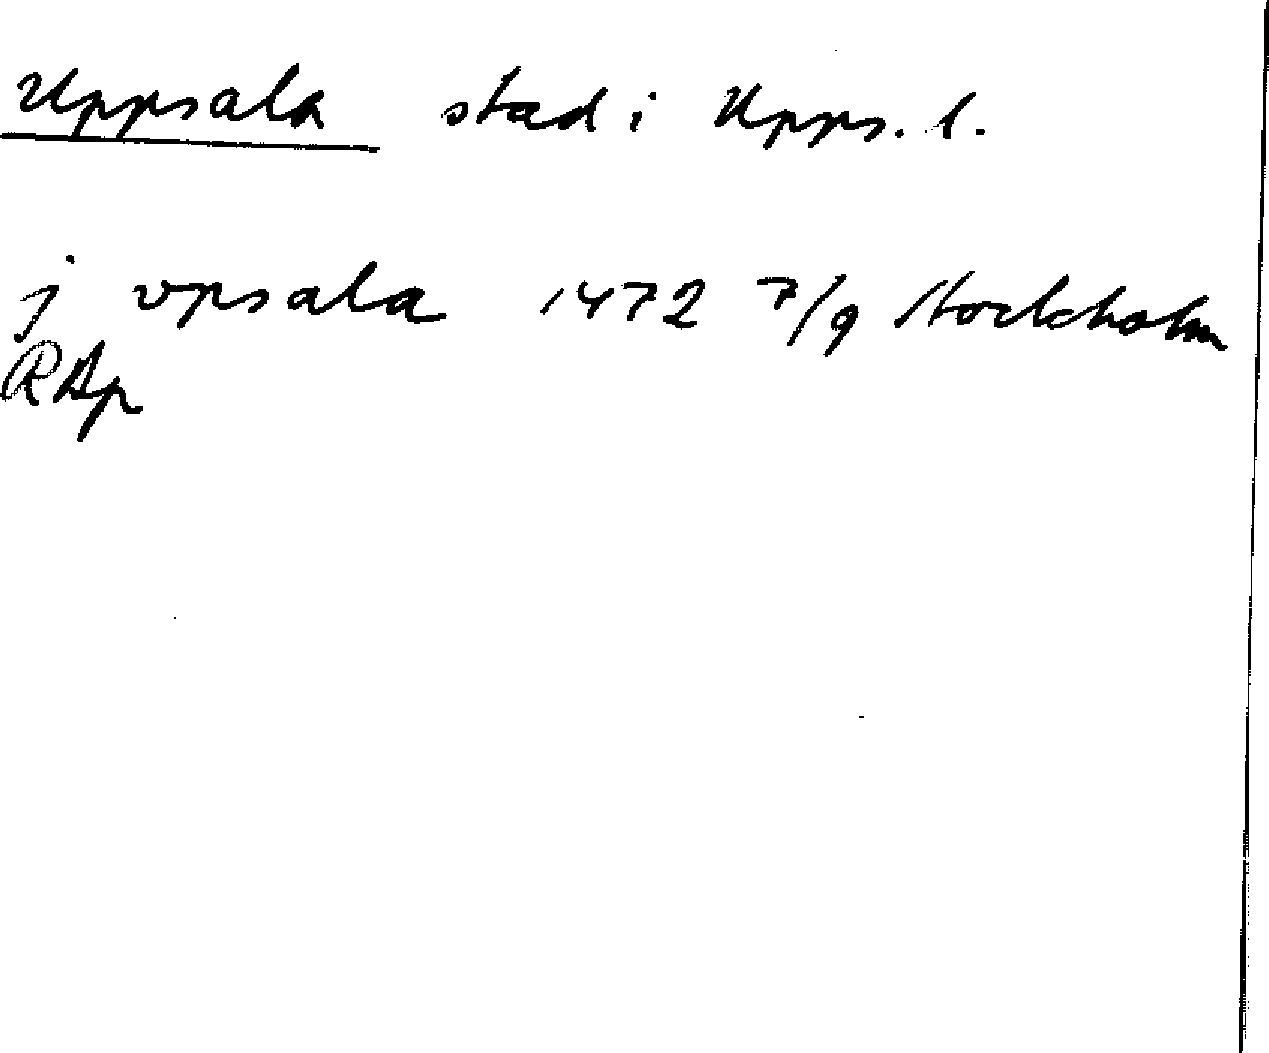 Uppsala stad i Upps. l.
j vpsala 1472 7/9 Stockholm
RAp